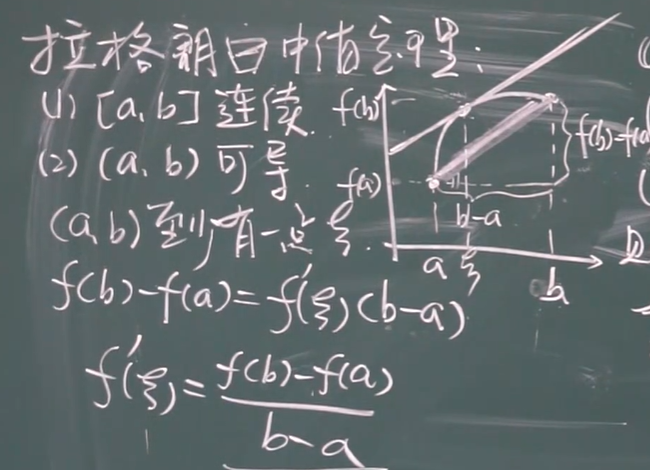 拉格朗日中值定理:
(1) [a,b] 连续.
(2) (a,b) 可导.
(a,b) 至少有一点 ξ.
f(b)-f(a)=f'(ξ)(b-a)
f'(ξ)=f(b)-f(a)
b-a
f(b)
f(b)-f(a
f(a)
b-a
a ξ b